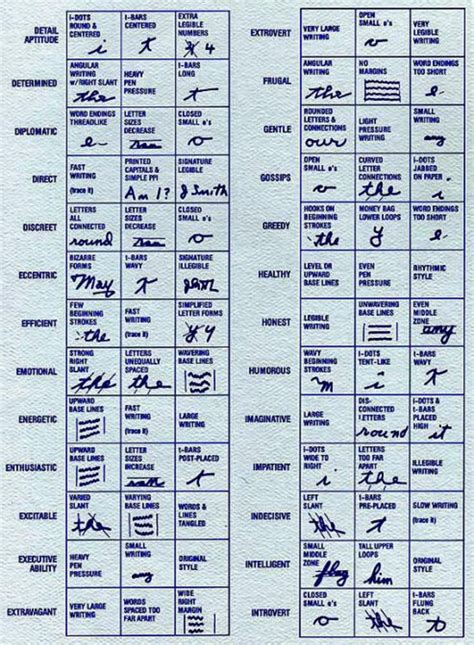 DETAIL
APTITUDE
I-DOTS
ROUND &
CENTERED
i
T-BARS
CENTERED
t
EXTRA
LEGIBLE
NUMBERS
4
DETERMINED
ANGULAR
WRITING
w/RIGHT SLANT
the
HEAVY
PEN
PRESSURE
T-BARS
LONG
t
DIPLOMATIC
WORD ENDINGS
THREADLIKE
e
LETTER
SIZES
DECREASE
CLOSED
SMALL o's
o
DIRECT
FAST
WRITING
(trace it)
PRINTED
CAPITALS &
SIMPLE PPI
Am I?
SIGNATURE
LEGIBLE
J Smith
DISCREET
LETTERS
ALL
CONNECTED
round
LETTER
SIZES
DECREASE
CLOSED
SMALL o's
o
ECCENTRIC
BIZARRE
FORMS
May
T-BARS
WAVY
t
SIGNATURE
ILLEGIBLE
EFFICIENT
FEW
BEGINNING
STROKES
the
FAST
WRITING
(trace it)
SIMPLIFIED
LETTER FORMS
y 4
EMOTIONAL
STRONG
RIGHT
SLANT
the
LETTERS
UNEQUALLY
SPACED
the
WAVERING
BASE LINES
ENERGETIC
UPWARD
BASE LINES
FAST
WRITING
(trace it)
LARGE
WRITING
ENTHUSIASTIC
UPWARD
BASE LINES
LETTER
SIZES
INCREASE
T-BARS
POST-PLACED
t
EXCITABLE
VARIED
SLANT
the
VARYING
BASE LINES
WORDS &
LINES
TANGLED
EXECUTIVE
ABILITY
HEAVY
PEN
PRESSURE
SMALL
WRITING
any
ORIGINAL
STYLE
EXTRAVAGANT
VERY LARGE
WRITING
WORDS
SPACED TOO
FAR APART
WIDE
RIGHT
MARGIN
EXTROVERT
VERY LARGE
WRITING
OPEN
SMALL o's
o
VERY
LEGIBLE
WRITING
FRUGAL
ANGULAR
WRITING
the
NO
MARGINS
WORD ENDINGS
TOO SHORT
e
GENTLE
ROUNDED
LETTERS &
CONNECTIONS
our
LIGHT
PRESSURE
WRITING
SMALL
WRITING
any
GOSSIPS
OPEN
SMALL o's
o
CURVED
LETTER
CONNECTIONS
the
I-DOTS
JABBED
ON PAPER
i
GREEDY
HOOKS ON
BEGINNING
STROKES
the
MONEY BAG
LOWER LOOPS
y
WORD ENDINGS
TOO SHORT
e
HEALTHY
LEVEL OR
UPWARD
BASE LINES
EVEN
PEN
PRESSURE
RHYTHMIC
STYLE
HONEST
LEGIBLE
WRITING
UNWAVERING
BASE LINES
EVEN
MIDDLE
ZONE
any
HUMOROUS
WAVY
BEGINNING
STROKES
m
I-DOTS
TENT-LIKE
i
T-BARS
WAVY
t
IMAGINATIVE
LARGE
WRITING
DIS-
CONNECTED
LETTERS
round
I-DOTS &
T-BARS
PLACED
HIGH
it
IMPATIENT
I-DOTS
WIDE TO
RIGHT
i
LETTERS
TOO FAR
APART
the
ILLEGIBLE
WRITING
INDECISIVE
LEFT
SLANT
the
T-BARS
PRE-PLACED
t
SLOW WRITING
(trace it)
INTELLIGENT
SMALL
MIDDLE
ZONE
flug
TALL UPPER
LOOPS
him
ORIGINAL
STYLE
INTROVERT
CLOSED
SMALL o's
o
LEFT
SLANT
the
T-BARS
FLUNG
BACK
t